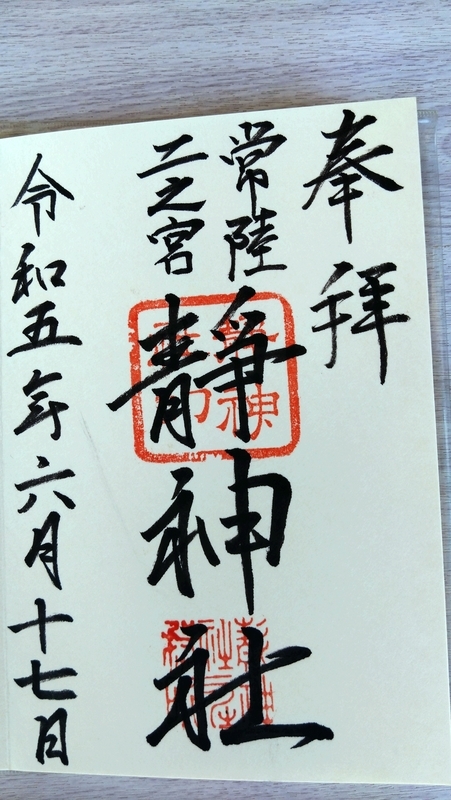 奉拝
常陸
二之宮
靜神社
令和五年六月十七日